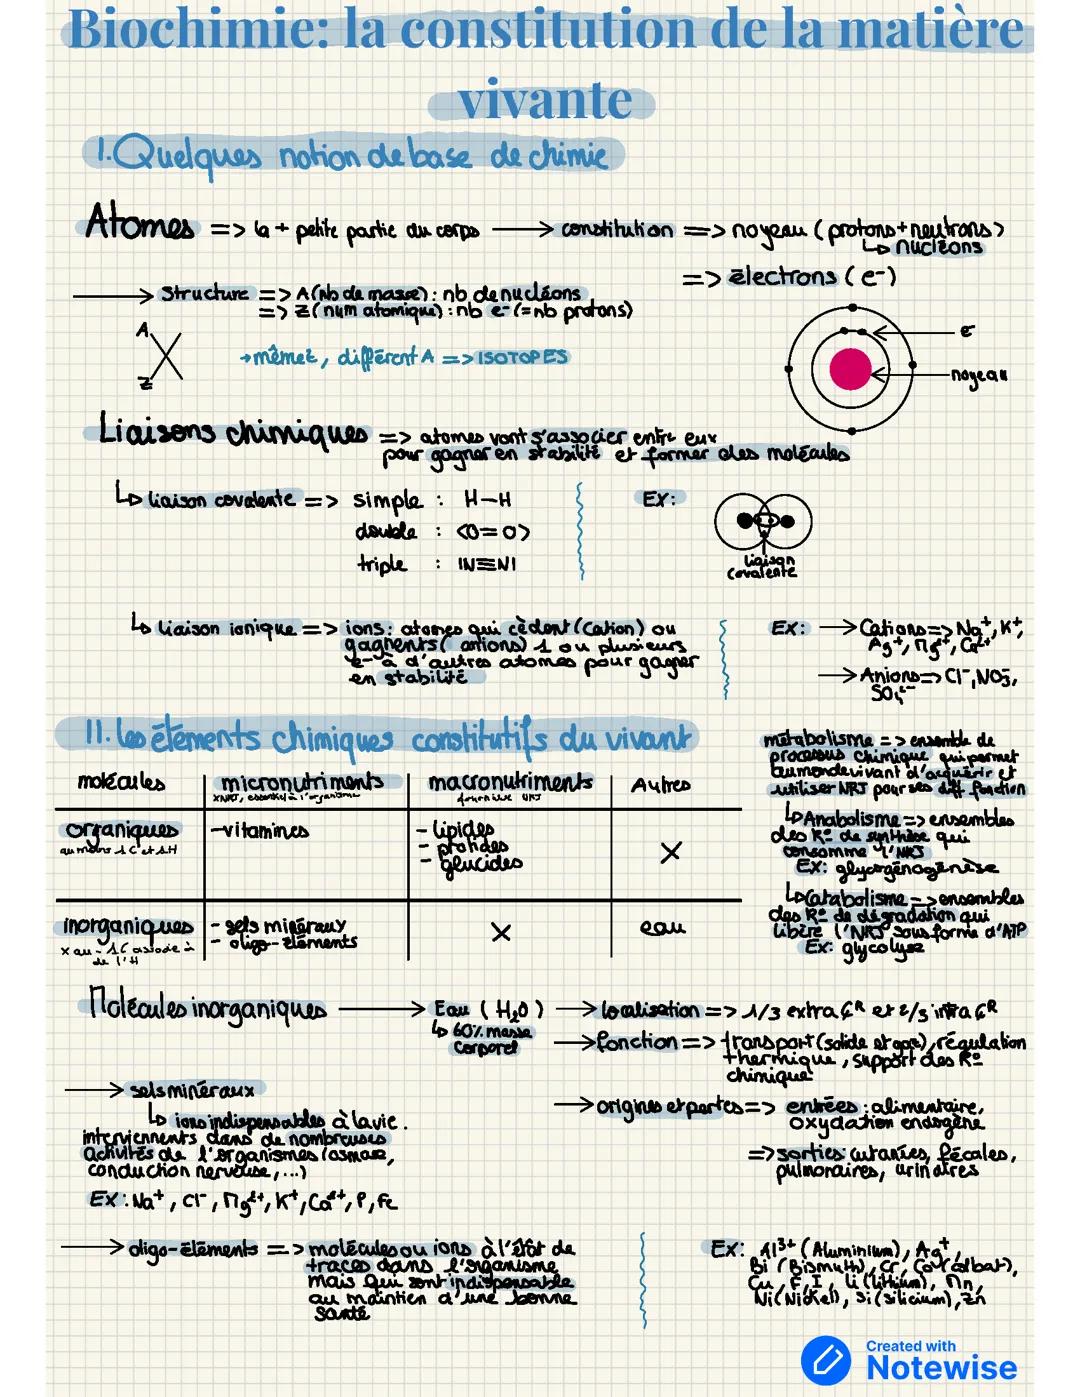 Biochimie: la constitution de la matière
vivante
I. Quelques notion de base de chimie
Atomes => la + petite partie du corps → constitution => noyeau (protons+neutrons)
↳ nucléons
=> électrons (e-)
→ Structure => A (Nb de masse) : nb de nucléons
=> Z (num atomique) : nb e- (= nb protons)
A
X
Z
→ même Z, différent A => ISOTOPES
e-
noyeau
Liaisons chimiques => atomes vont s'associer entre eux
pour gagner en stabilité et former des molécules
↳ liaison covalente => simple : H-H
double : <O=O>
triple : IN≡NI
EX:
liaison
covalente
↳ liaison ionique => ions: atomes qui cèdent (cation) ou
gagnents (anions) 1 ou plusieurs
e- à d'autres atomes pour gagner
en stabilité
EX: → Cations => Na+, K+,
Ag+, Mg2+, Ca2+
→ Anions => Cl-, NO3-,
SO42-
II. les éléments chimiques constitutifs du vivant
molécules | micronutriments | macronutriments | Autres
XNRJ, essentiel à l'organisme
fournisse NRJ
organiques
au moins 1 C et 1 H
-vitamines
- lipides
- protides
- glucides
X
inorganiques
x au - 1 C associé à
de l'H
- sels minéraux
- oligo-éléments
X
eau
métabolisme => ensemble de
processus chimique qui permet
au monde vivant d'acquérir et
utiliser NRJ pour ses diff fonction
↳ Anabolisme => ensembles
des R° de synthèse qui
consomme l'NRJ
EX: glycogénogenèse
↳ Catabolisme => ensembles
des R° de dégradation qui
libère l'NRJ sous forme d'ATP
Ex: glycolyse
Molécules inorganiques → Eau (H2O) → localisation => 1/3 extra çR et 2/3 intra çR
↳ 60% masse
corporel
→ fonction => transport (solide et gaz), régulation
thermique, support des R°
chimique
→ sels minéraux
↳ ions indispensables à la vie.
interviennents dans de nombreuses
activités de l'organismes (osmose,
conduction nerveuse, ...)
EX: Na+, Cl-, Mg2+, K+, Ca2+, P, Fe
→ origines et pertes => entrées : alimentaire,
oxydation endogène
=> sorties: cutanées, fécales,
pulmonaires, urinaires
→ oligo-éléments => molécules ou ions à l'état de
traces dans l'organisme
mais qui sont indispensable
au maintien d'une bonne
santé
EX: Al3+ (Aluminium), Ag+,
Bi (Bismuth), Cr, Co
Cu, F, I, Li (lithium), Mn,
Ni (Nickel), Si (silicium), Zn
Created with
Notewise